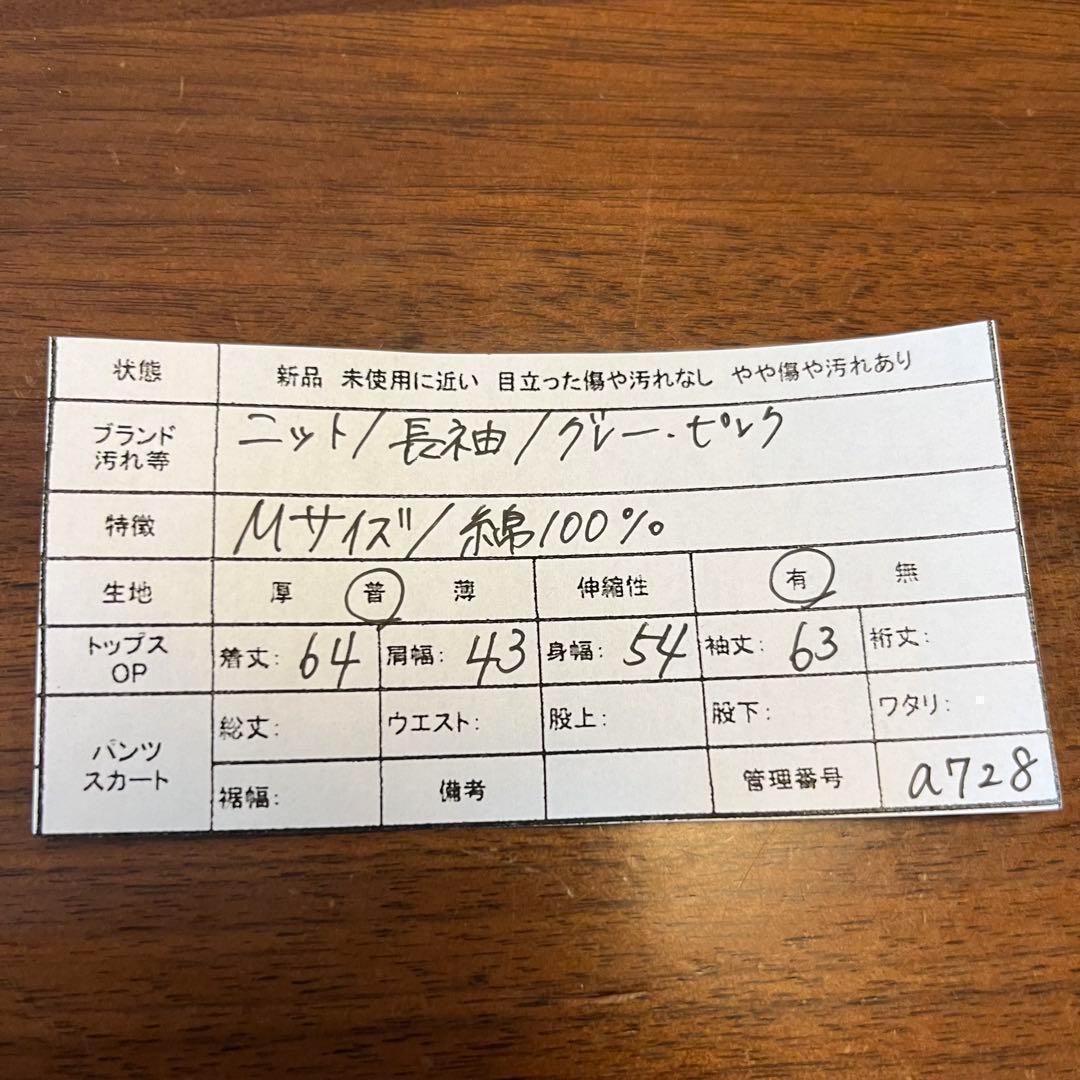 状態 新品 未使用に近い 目立った傷や汚れなし やや傷や汚れあり
ブランド
汚れ等
ニット/長袖/グレー・ピンク
特徴 Mサイズ/綿100%
生地 厚 普 薄 伸縮性 有 無
トップス
OP
着丈: 64 肩幅: 43 身幅: 54 袖丈: 63 裄丈:
パンツ
スカート
総丈: ウエスト: 股上: 股下: ワタリ:
裾幅: 備考 管理番号 a728